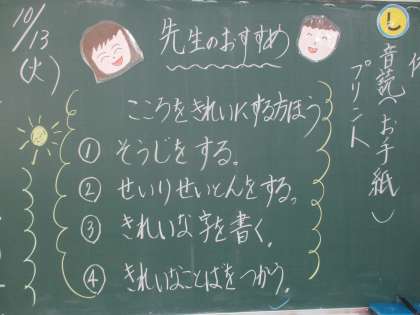 10/13
(火)
先生のおすすめ
こころをきれいにする方ほう
① そうじをする。
② せいりせいとんをする。
③ きれいな字を書く。
④ きれいなことばをつかう。
し
音読(お手紙)
プリント